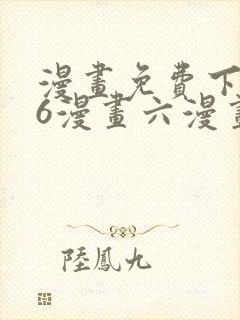 漫畫免費下
6漫畫六漫畫
陸鳳九